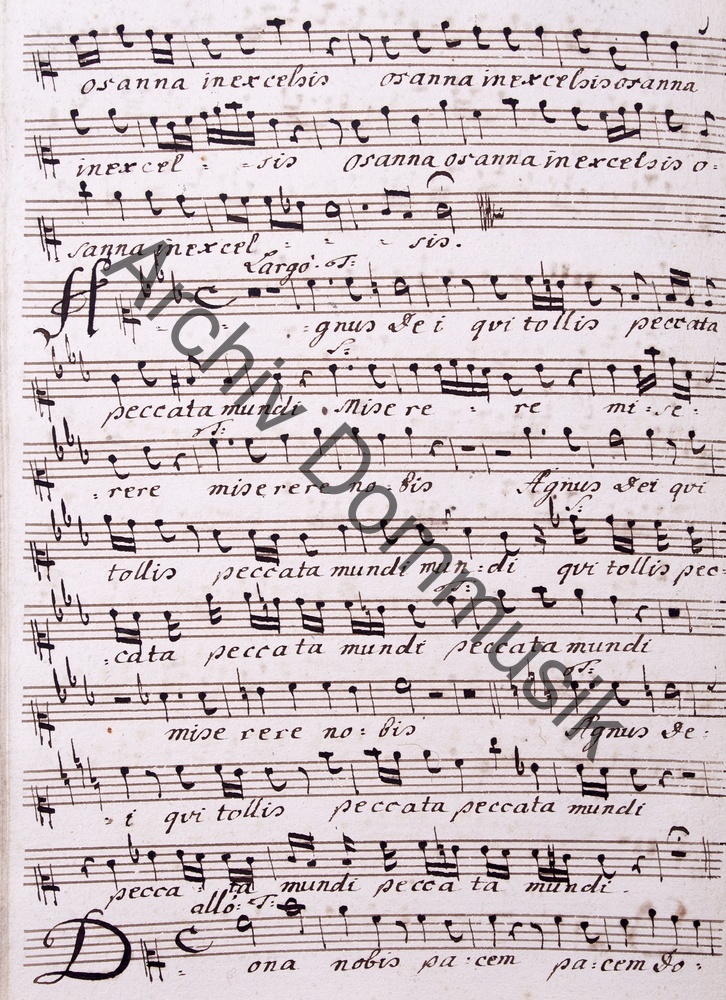 osanna in excelsis osanna in excelsis osanna
in excel - - sis osanna osanna in excelsis o-
sanna in excel - - - sis.
Largo. T:
A - - gnus Dei qvi tollis peccata
S:
peccata mundi. Misere - re mi-se-
T:
-rere miserere no-bis Agnus Dei qvi
S:
tollis peccata mundi mun-di qvi tollis pec-
-cata peccata mundi peccata mundi
T:
miserere no-bis Agnus De-
- i qvi tollis peccata peccata mundi
pecca - ta mundi peccata mundi.
allo: T:
D - ona nobis pa-cem pa-cem do-
Archiv Dommusik